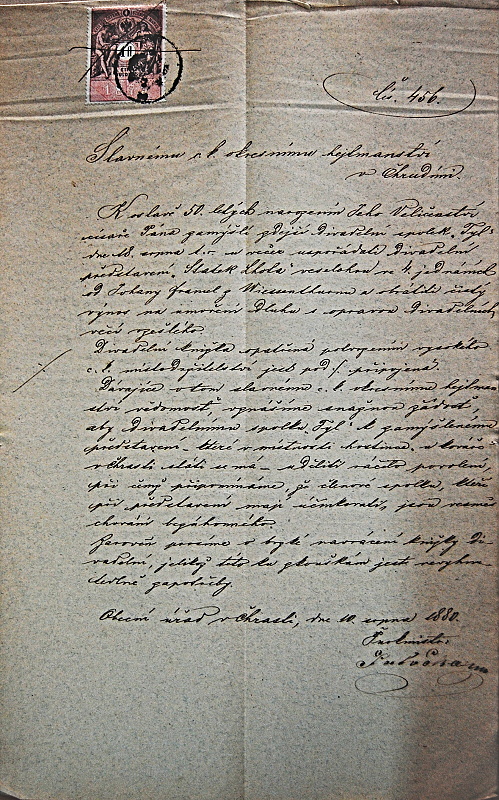 čís. 456.
Slavnému c. k. okresnímu hejtmanství
v Chrudimi.
K oslavě 50. letých narozenin Jeho Veličenství
císaře Pána pamýšlí zdejší divadelní spolek "Tyl"
dne 18. srpna t. r. u večer uspořádati divadelní
představení, Statek veselohru ve 4. jednáních
od Johany Franul z Weissenthurnu a obrátiti čistý
výnos na umoření dluhu s opravou divadelních
věcí vzešlého.
Divadelní knížka opatřená povolením vysokého
c. k. místodržitelství jest pod ./. připojená.
Dávajíce o tom slavnému c. k. okresnímu hejtman
ství vědomosť, vznášíme snažnou žádosť,
aby divadelnímu spolku "Tyl" k zamýšlenému
představení - které v místnosti hostince u
v Chrasti státi se má - uděliti ráčilo povolení,
při čemž připomínáme, že členové spolku, kteří
při představení mají účinkovati, jsou vesměs
chování bezúhonného.
Zároveň prosíme o brzké navrácení knížky di-
vadelní, jelikož tato ku zkouškám jest nevyhnu-
telně zapotřebí.
Obecní úřad v Chrasti, dne 10. srpna 1880.